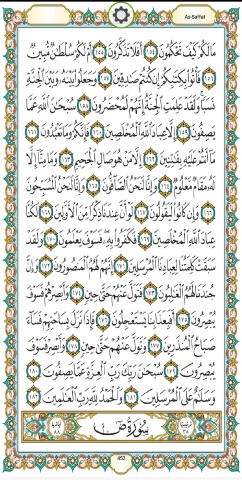 As-Saffat
مَا لَكُمْ كَيْفَ تَحْكُمُونَ ١٥٤ أَفَلَا تَذَكَّرُونَ ١٥٥ أَمْ لَكُمْ سُلْطَٰنٌ مُّبِينٌ
١٥٦ فَأْتُوا۟ بِكِتَٰبِكُمْ إِن كُنتُمْ صَٰدِقِينَ ١٥٧ وَجَعَلُوا۟ بَيْنَهُۥ وَبَيْنَ ٱلْجِنَّةِ
نَسَبًا ۚ وَلَقَدْ عَلِمَتِ ٱلْجِنَّةُ إِنَّهُمْ لَمُحْضَرُونَ ١٥٨ سُبْحَٰنَ ٱللَّهِ عَمَّا
يَصِفُونَ ١٥٩ إِلَّا عِبَادَ ٱللَّهِ ٱلْمُخْلَصِينَ ١٦٠ فَإِنَّكُمْ وَمَا تَعْبُدُونَ ١٦١
مَآ أَنتُمْ عَلَيْهِ بِفَٰتِنِينَ ١٦٢ إِلَّا مَنْ هُوَ صَالِ ٱلْجَحِيمِ ١٦٣ وَمَا مِنَّآ إِلَّا
لَهُۥ مَقَامٌ مَّعْلُومٌ ١٦٤ وَإِنَّا لَنَحْنُ ٱلصَّآفُّونَ ١٦٥ وَإِنَّا لَنَحْنُ ٱلْمُسَبِّحُونَ
١٦٦ وَإِن كَانُوا۟ لَيَقُولُونَ ١٦٧ لَوْ أَنَّ عِندَنَا ذِكْرًا مِّنَ ٱلْأَوَّلِينَ ١٦٨ لَكُنَّا
عِبَادَ ٱللَّهِ ٱلْمُخْلَصِينَ ١٦٩ فَكَفَرُوا۟ بِهِۦ ۖ فَسَوْفَ يَعْلَمُونَ ١٧٠ وَلَقَدْ
سَبَقَتْ كَلِمَتُنَا لِعِبَادِنَا ٱلْمُرْسَلِينَ ١٧١ إِنَّهُمْ لَهُمُ ٱلْمَنصُورُونَ ١٧٢ وَإِنَّ
جُندَنَا لَهُمُ ٱلْغَٰلِبُونَ ١٧٣ فَتَوَلَّ عَنْهُمْ حَتَّىٰ حِينٍ ١٧٤ وَأَبْصِرْهُمْ فَسَوْفَ
يُبْصِرُونَ ١٧٥ أَفَبِعَذَابِنَا يَسْتَعْجِلُونَ ١٧٦ فَإِذَا نَزَلَ بِسَاحَتِهِمْ فَسَآءَ
صَبَاحُ ٱلْمُنذَرِينَ ١٧٧ وَتَوَلَّ عَنْهُمْ حَتَّىٰ حِينٍ ١٧٨ وَأَبْصِرْ فَسَوْفَ
يُبْصِرُونَ ١٧٩ سُبْحَٰنَ رَبِّكَ رَبِّ ٱلْعِزَّةِ عَمَّا يَصِفُونَ ١٨٠
وَسَلَٰمٌ عَلَى ٱلْمُرْسَلِينَ ١٨١ وَٱلْحَمْدُ لِلَّهِ رَبِّ ٱلْعَٰلَمِينَ ١٨٢
ترتيبها ٣٨ سُورَةُ ص آياتها ٨٨
452